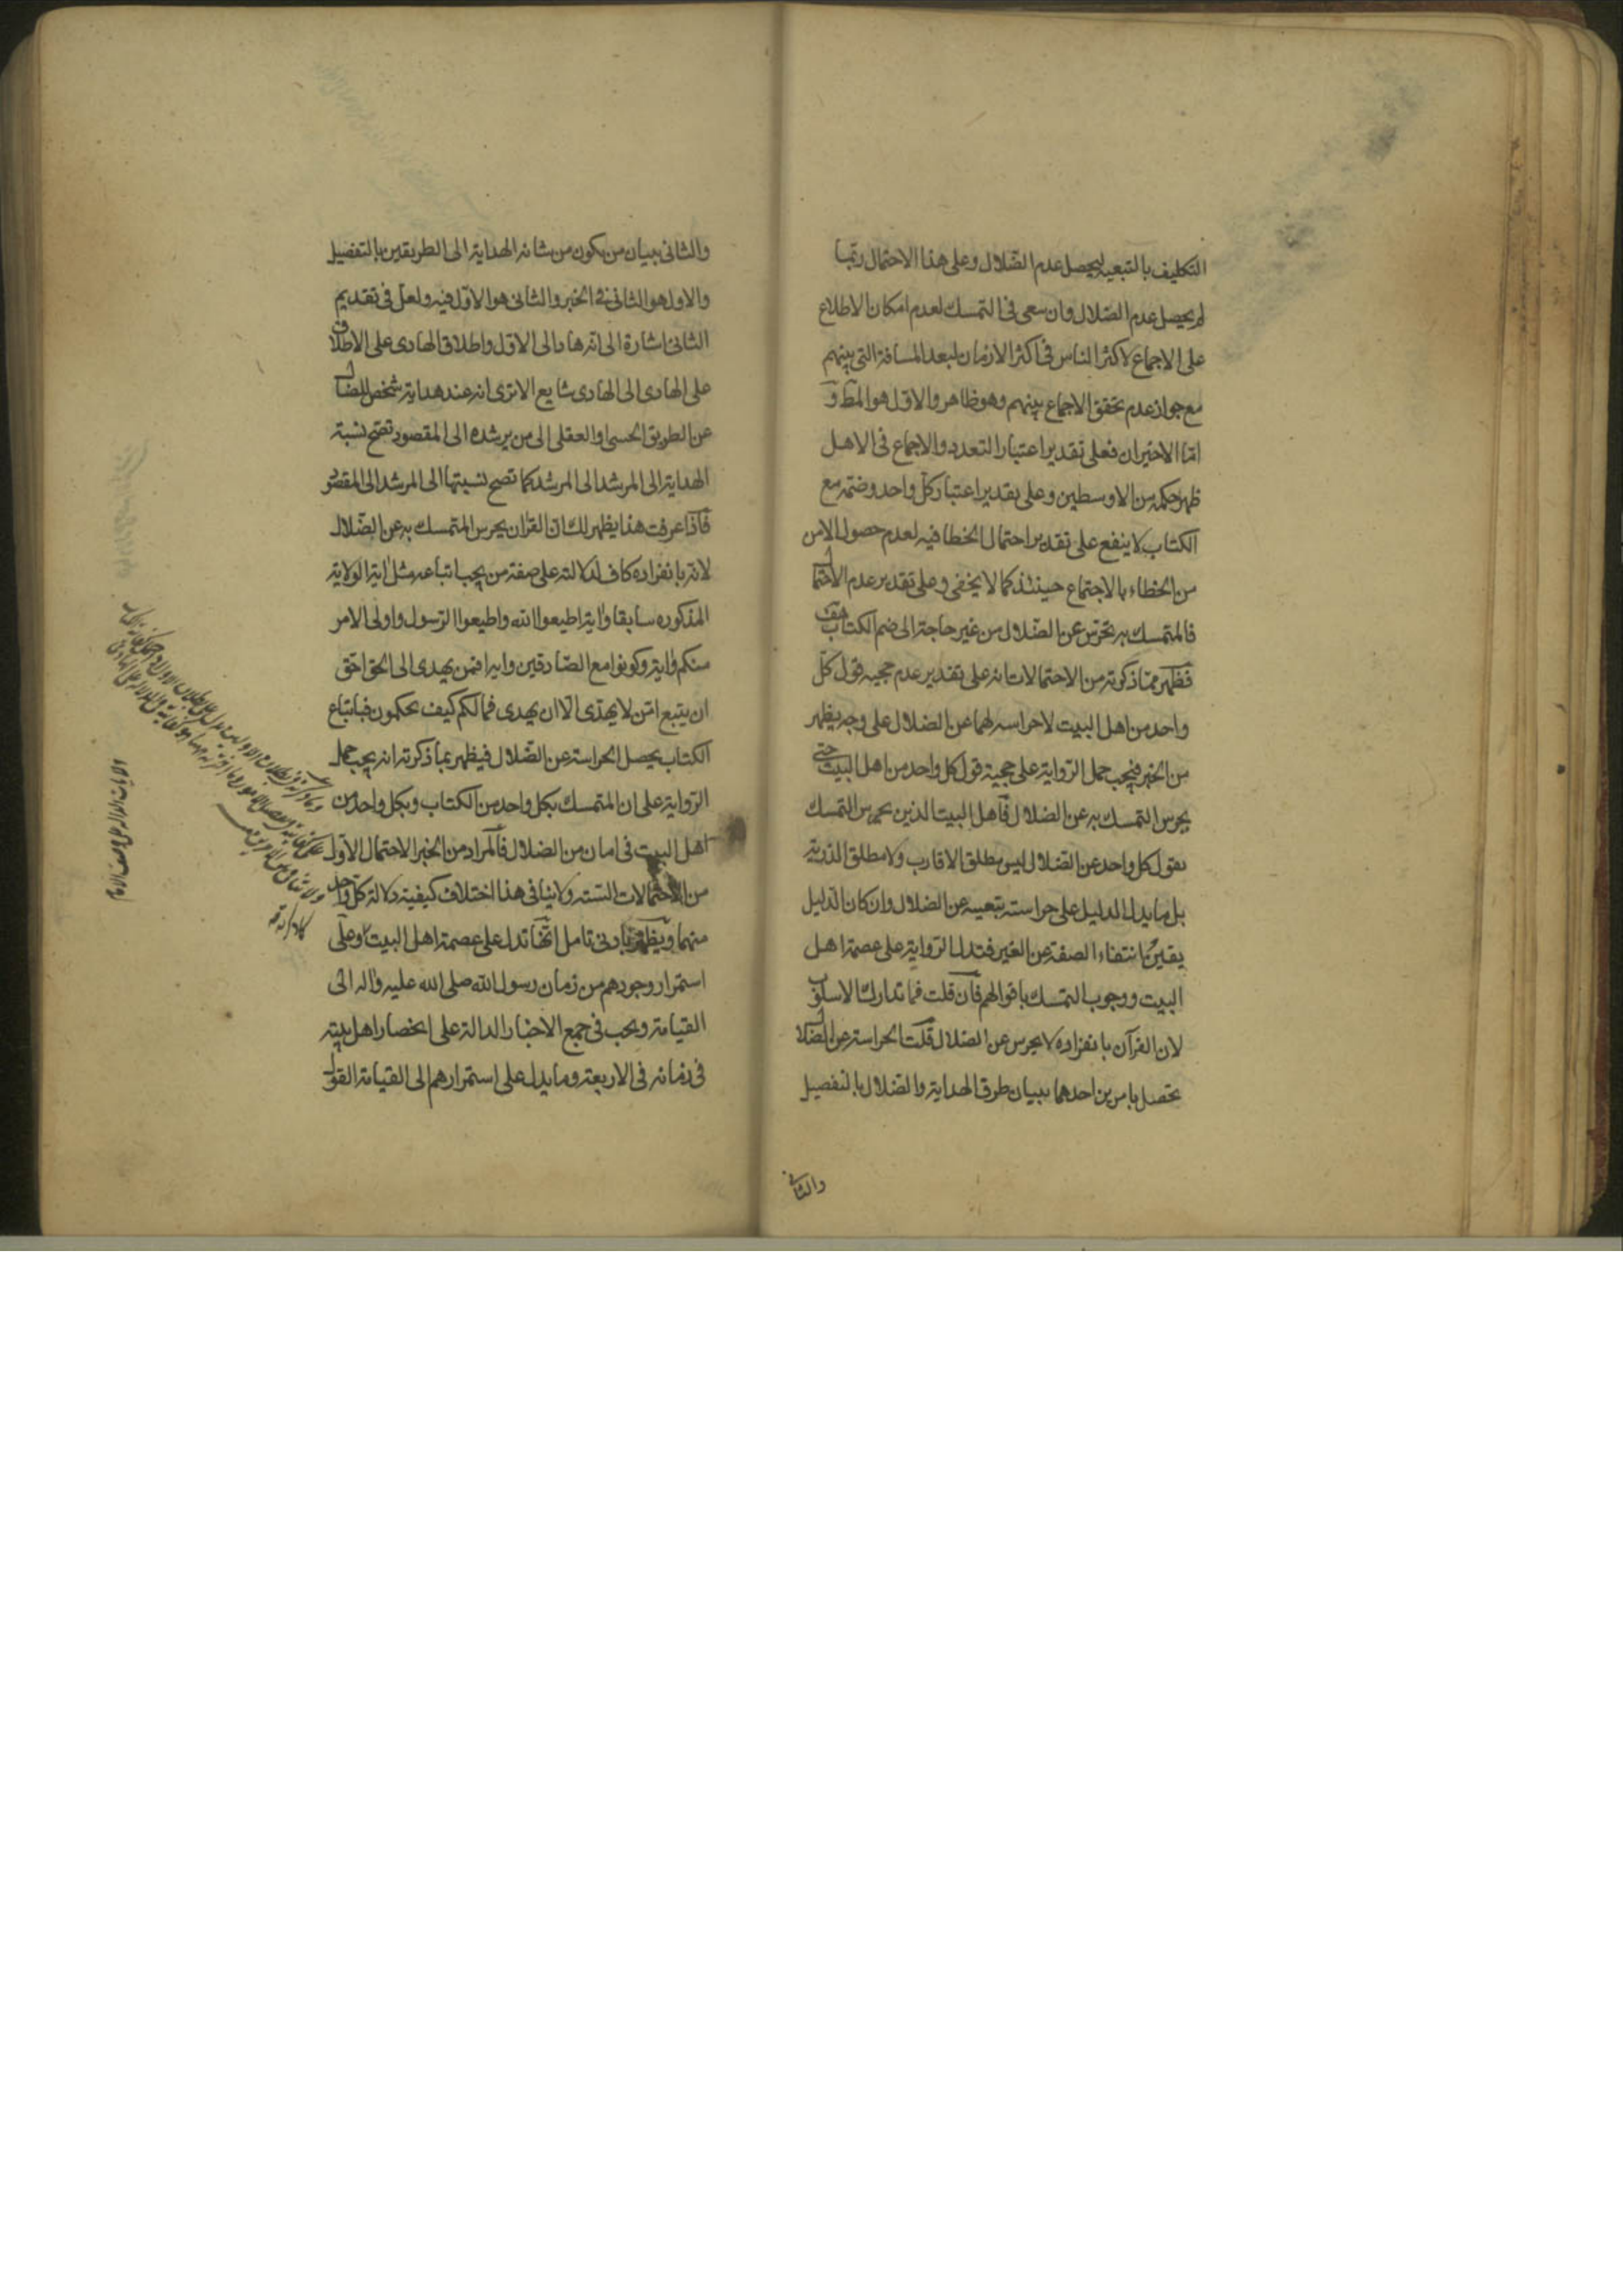 التكليف بالتبعية ليحصل عدم الضلال وعلى هذا الاحتمال ربما
لم يحصل عدم الضلال وان سعى فى التمسك لعدم امكان الاطلاع
على الاجماع لاكثر الناس فى اكثر الازمان لبعد المسافة التى بينهم
مع جواز عدم تحقق الاجماع بينهم وهو ظاهر والاول هو المط و
اما الاخيران فعلى تقدير اعتبار التعدد والاجماع فى الاهل
ظهر حكمه من الاوسطين وعلى تقدير اعتبار كل واحد وضمه مع
الكتاب لا ينفع على تقدير احتمال الخطا فيه لعدم حصول الامن
من الخطاء بالاجتماع حينئذ كما لا يخفى وعلى تقدير عدم الاحتمال
فالمتمسك به تحرس عن الضلال من غير حاجة الى ضم الكتاب
فظهر مما ذكرته من الاحتمالات انه على تقدير عدم حجيه قول كل
واحد من اهل البيت لا حراسه لهما عن الضلال على وجه يظهر
من الخبر فيجب حمل الرواية على حجية قول كل واحد من اهل البيت حتى
يحرس التمسك به عن الضلال فاهل البيت الذين يحرس التمسك
بقول كل واحد عن الضلال ليس مطلق الاقارب ولا مطلق الذرية
بل ما يدل الدليل على حراسته بتعيينه عن الضلال وان كان الدليل
انتفاء الصفة عن الغير فتدل الرواية على عصمة اهل
البيت ووجوب التمسك باقوالهم فان قلت فما تدارك الاسلوب
لان القرآن بانفراده لا يحرس عن الضلال قلت الحراسة عن الضلال
تحصل بامرين احدهما ببيان طرق الهداية والضلال بالتفصيل
والثانى
والثانى ببيان من يكون من شانه الهداية الى الطريقين بالتفصيل
والاول هو الثانى فى الخبر والثانى هو الاول فيه ولعل فى تقديم
الثانى اشارة الى انه هاد الى الاول واطلاق الهادى على الاطلاق
على الهادى الى الهادى شايع الا ترى انه عند هداية شخص للضال
عن الطريق الحسى او العقلى الى من يرشده الى المقصود تصح نسبة
الهداية الى المرشد الى المرشد كما تصح نسبتها الى المرشد الى المقصود
فاذا عرفت هذا يظهر لك ان القرآن يحرس المتمسك به عن الضلال
لانه بانفراده كاف لدلالته على صفة من يجب اتباعه مثل اية الولاية
المذكوره سابقا واية اطيعوا الله واطيعوا الرسول واولى الامر
منكم واية وكونوا مع الصادقين واية افمن يهدى الى الحق احق
ان يتبع امن لا يهدى الا ان يهدى فما لكم كيف تحكمون فباتباع
الكتاب يحصل الحراسة عن الضلال فيظهر بما ذكرته انه يجب حمل
الرواية على ان المتمسك بكل واحد من الكتاب وبكل واحد من
اهل البيت فى امان من الضلال فالمراد من الخبر الاحتمال الاول
من الاحتمالات السته ولا ينافى هذا اختلاف كيفية دلالة كل واحد
منهما ويظهر بادنى تامل انها تدل على عصمة اهل البيت وعلى
استمرار وجودهم من زمان رسول الله صلى الله عليه واله الى
القيامة ويجب فى جمع الاخبار الدالة على انحصار اهل بيته
فى زمانه فى الاربعة وما يدل على استمرارهم الى القيامة القول